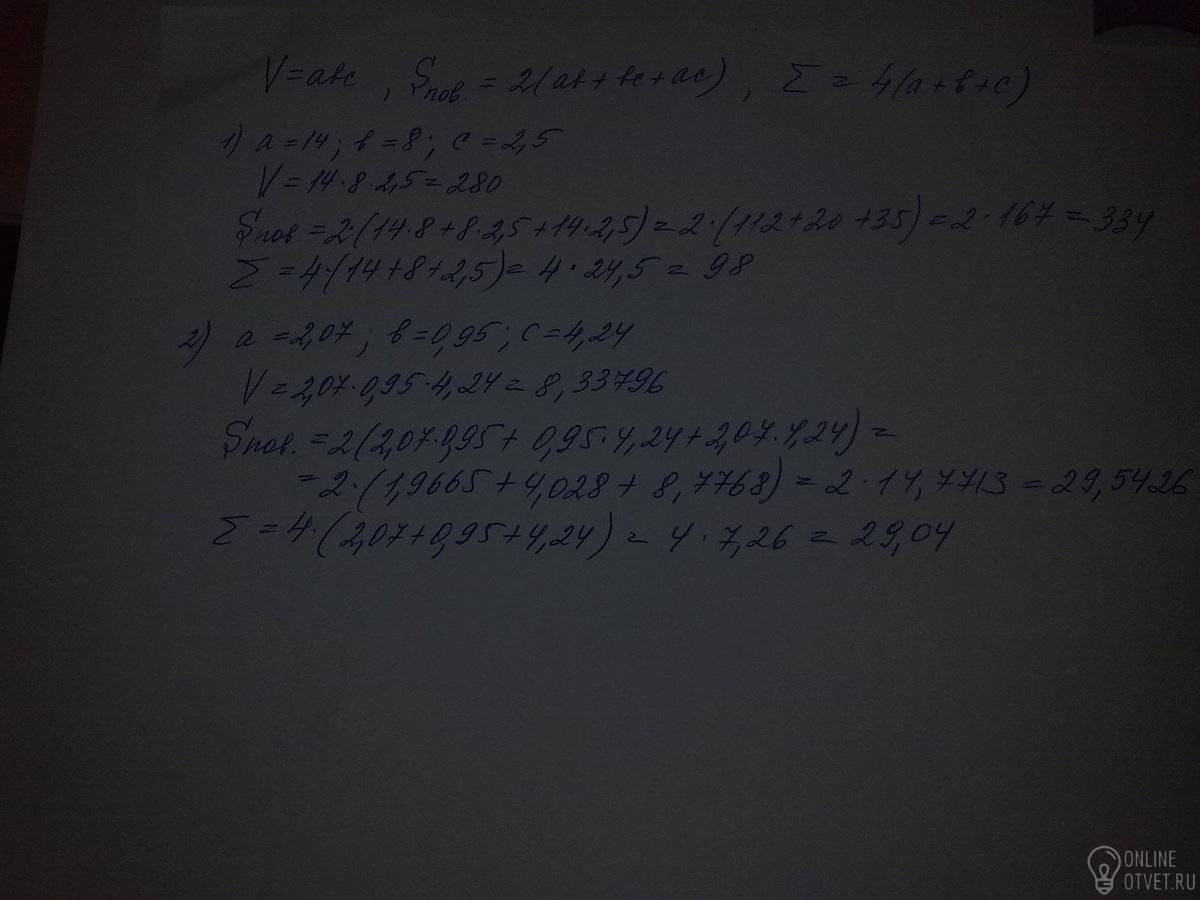 V=авс , Sпов. = 2(ав+вс+ас) , Σ = 4(а+в+с)
1) а=14; в=8; с=2,5
V=14·8·2,5=280
Sпов=2·(14·8+8·2,5+14·2,5)=2·(112+20+35)=2·167=334
Σ=4·(14+8+2,5)=4·24,5=98
2) а=2,07; в=0,95; с=4,24
V=2,07·0,95·4,24=8,33796
Sпов.=2(2,07·0,95+0,95·4,24+2,07·4,24)=
=2·(1,9665+4,028+8,7768)=2·14,7713=29,5426
Σ=4·(2,07+0,95+4,24)=4·7,26=29,04
ONLINE
OTVET.RU